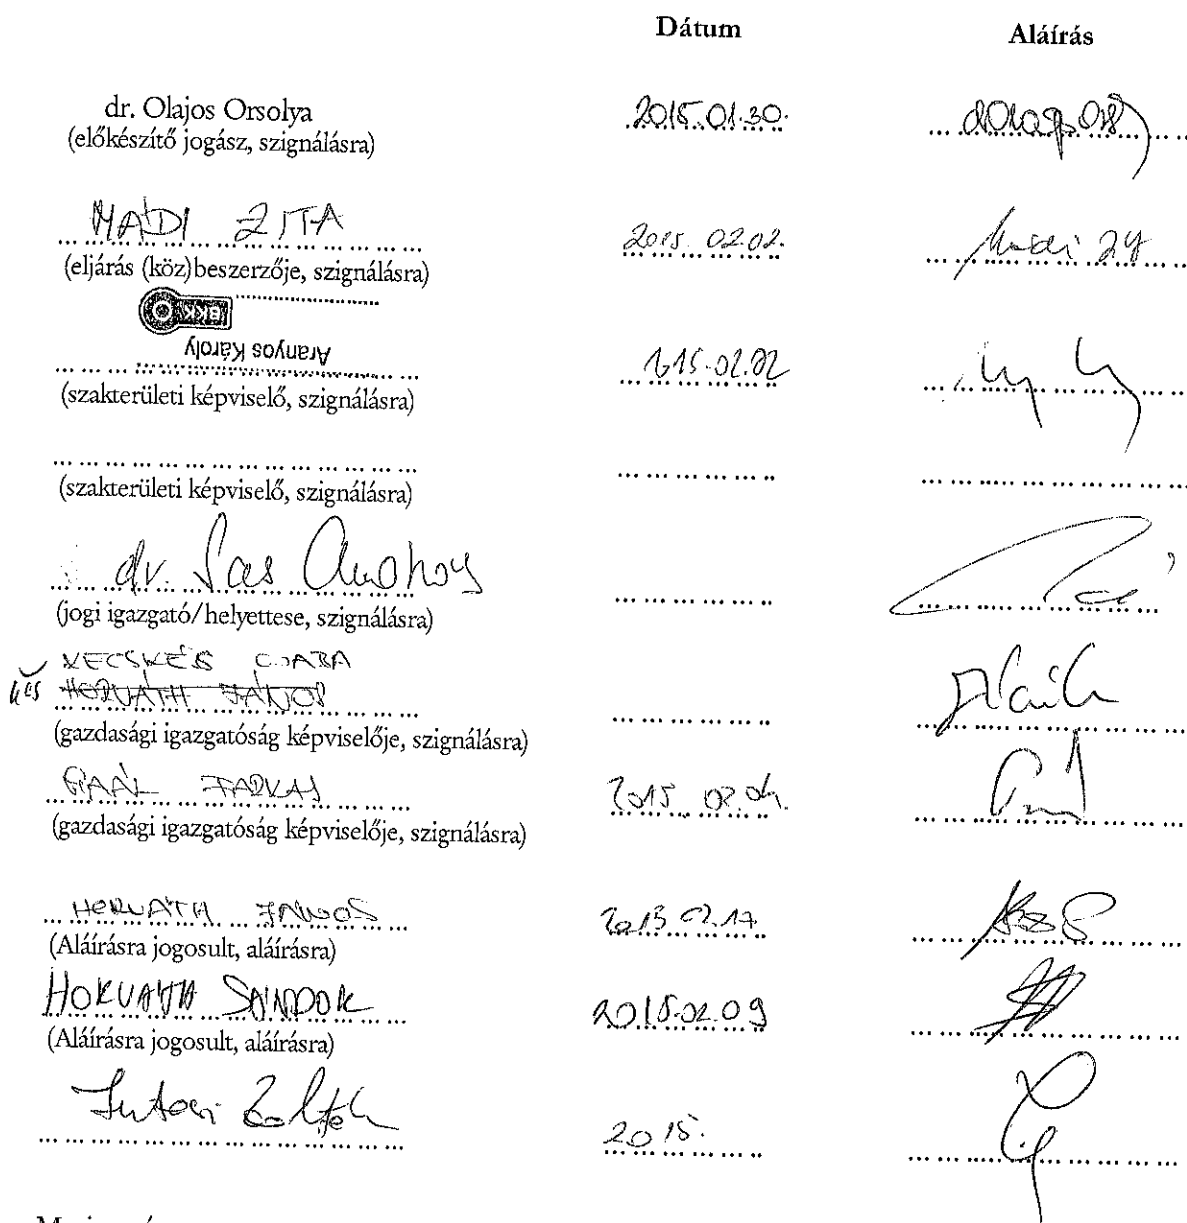 Dátum Aláírás
dr. Olajos Orsolya 2015.01.30.
(előkészítő jogász, szignálásra)
MÁDI ZITA 2015. 02.02.
(eljárás (köz)beszerzője, szignálásra)
BKK
Aranyos Károly
(szakterületi képviselő, szignálásra)
(szakterületi képviselő, szignálásra)
dr. Sas
(jogi igazgató/helyettese, szignálásra)
KECSKÉS CSABA
HORVÁTH JÁNOS
(gazdasági igazgatóság képviselője, szignálásra)
GAÁL FARKAS 2015. 02.04.
(gazdasági igazgatóság képviselője, szignálásra)
HORVÁTH JÁNOS
(Aláírásra jogosult, aláírásra)
HORVÁTH SÁNDOR 2015.02.09
(Aláírásra jogosult, aláírásra)
Zoltán 2015.